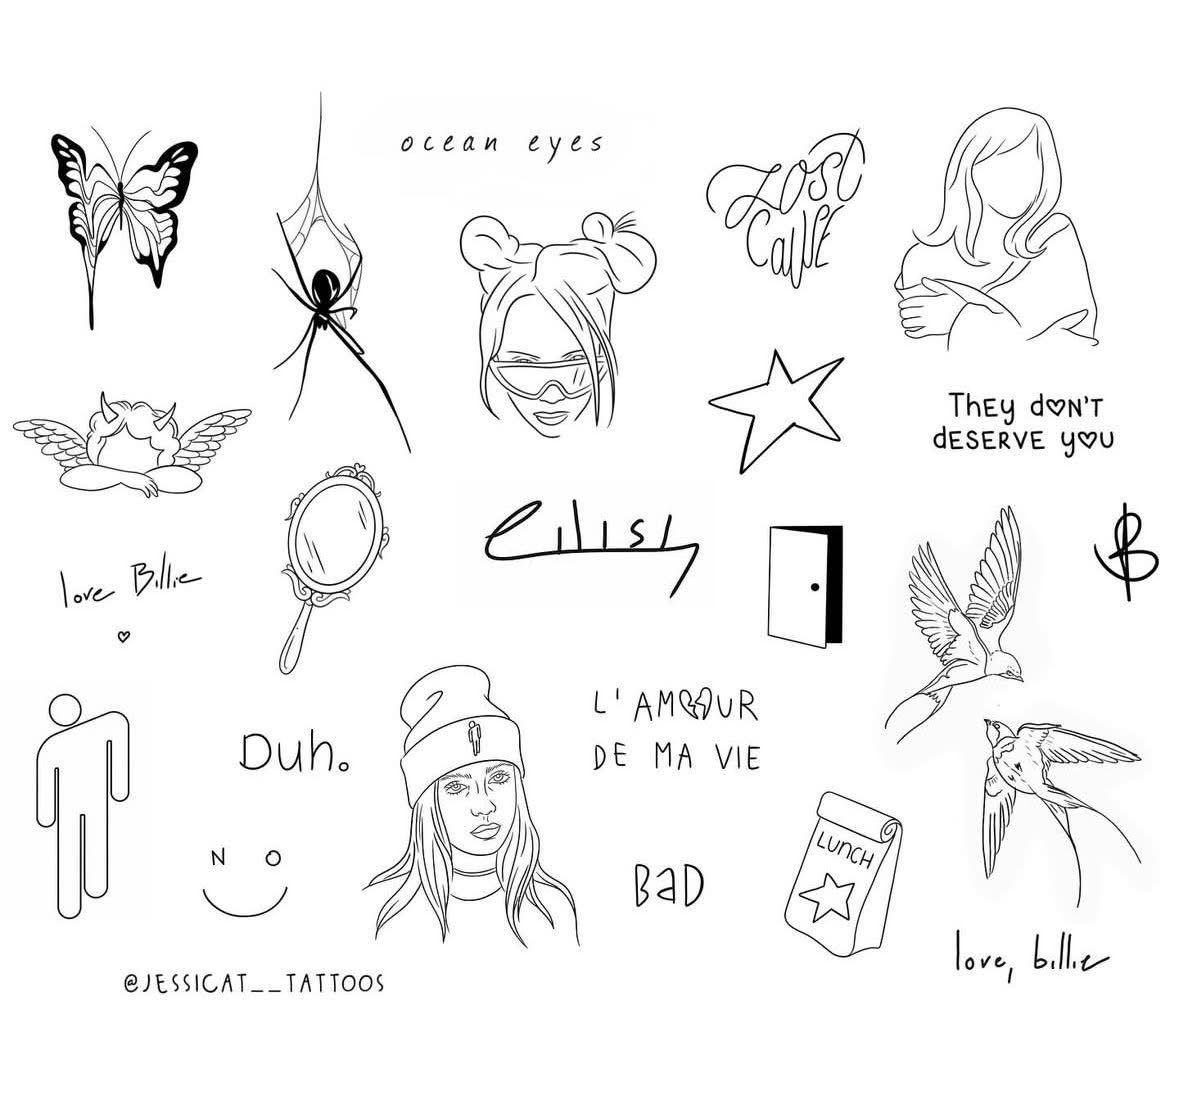 ocean eyes
Lost
Cause
They don't
deserve you
eilish
love Billie
B
L' AMOUR
DE MA VIE
Duh.
N O
LUNCH
BaD
love, billie
@JESSICAT__TATTOOS